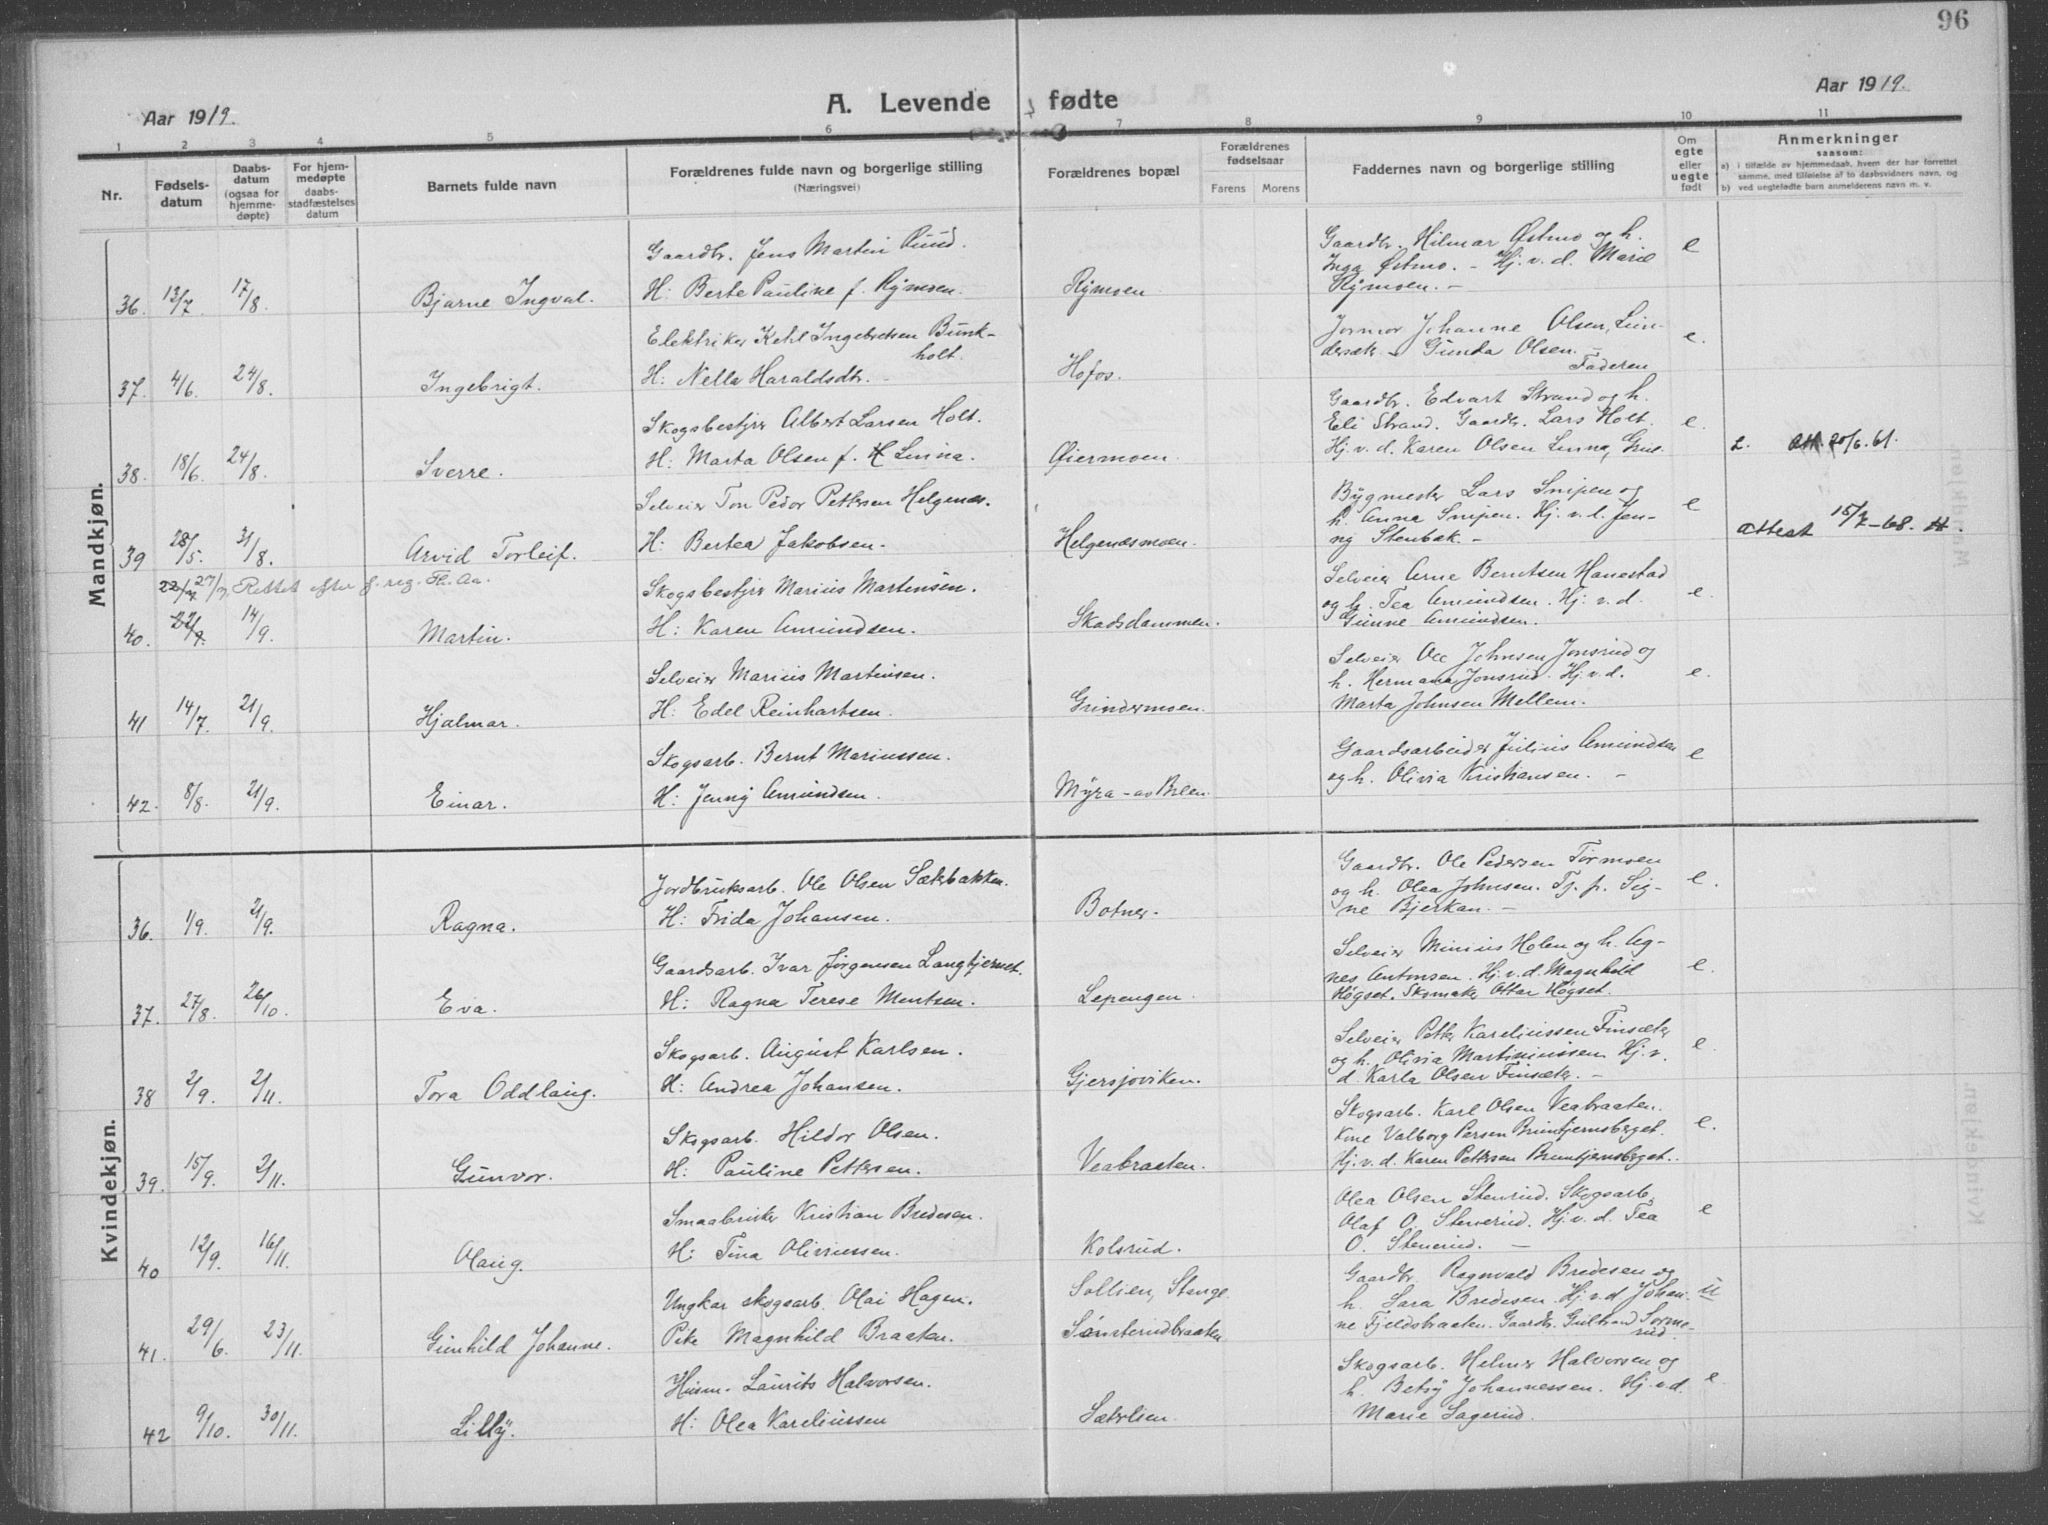 96
Aar 1919.
A. Levende fødte
Aar 1919.
1 2 3 4 5 6 7 8 9 10 11
Nr.
Fødsels-
datum
Daabs-
datum
(ogsaa for
hjemme-
døpte)
For hjem-
medøpte
daabs-
stadfæstelses
datum
Barnets fulde navn
Forældrenes fulde navn og borgerlige stilling
(Næringsvei)
Forældrenes bopæl
Forældrenes
fødselsaar
Farens Morens
Faddernes navn og borgerlige stilling
Om
egte
eller
uegte
født
Anmerkninger
saasom:
a) i tilfælde av hjemmedaab, hvem der har forrettet
samme, med tilføielse af to daabsvidners navn, og
b) ved uegtefødte barn anmelderens navn m. v.
Mandkjøn.
36. 13/7. 17/8. Bjarne Ingval.
Gaardbr. Jens Martin Ruud.
H: Berte Pauline f. Rymoen.
Rymoen
Gaardbr. Hilmar Østmo og h.
Inga Østmo. - Hj. v. d. Marie
Rymoen. -
e
37. 4/6. 24/8. Ingebrigt.
Elektriker Ketil Ingebretsen Bunk-
holt.
H: Nella Haraldsdtr. -
Hofos.
Jormor Johanne Olsen, Lun-
dersæter. Gunda Olsen. -
Faderen
e.
38. 18/6. 24/8. Sverre.
Skogsbestyrer Albert Larsen Holt.
H: Marta Olsen f. Linna.
Øiermoen.
Gaardbr. Edvart Strand og h.
Eli Strand. Gaardbr. Lars Holt.
Hj. v. d. Karen Olsen Linna, Grue.
e.
2. att. 20/6. 61.
39 28/5. 31/8. Arvid Torleif.
Selveier Ton Pedor Pettersen Helgenæs.
H: Bertea Jakobsen.
Helgenæsmoen.
Bygmester Lars Snipen og
h. Anna Snipen. Hj. v. d. Jen-
ny Stenbæk. -
e
attest 15/7-68. H.
22/7 27/7 Rettet efter f. reg. Th. Aa.
40. 22/7. 14/9. Martin.
Skogsbestyrer Marius Martensen.
H: Karen Amundsen.
Skadsdammen.
Selveier Arne Berntsen Hanestad
og h. Tea Amundsen. Hj. v. d.
Gunne Amundsen.
e.
41 14/7. 21/9. Hjalmar.
Selveier Marius Martinsen.
H: Edel Reinhartsen.
Grindermoen.
Selveier Ole Johnsen Jonsrud og
h. Hermana Jonsrud. Hj. v. d.
Marta Johnsen Mellem.
e.
42. 8/8. 21/9. Einar.
Skogsarb. Bernt Mariussen.
H: Jenny Amundsen.
Myra - av Bren.
Gaardsarbeider Julius Amundsen
og h. Olivia Kristiansen. -
e
Kvindekjøn.
36. 1/9. 21/9. Ragna.
Jordbruksarb. Ole Olsen Sæterbakken.
H: Frida Johansen.
Botner.
Gaardbr. Ole Pedersen Tørmoen
og h. Olea Johnsen. Tj. p. Sig-
ne Bjerkan. -
e.
37. 27/8. 26/10. Eva.
Gaardsarb. Ivar Jørgensen Langtjernet.
H: Ragna Terese Mentsen.
Lepengen.
Selveier Minius Holen og h. Ag-
nes Antonsen. Hj. v. d. Magnhild
Høgset. Skomaker Ottar Høgset.
e.
38 2/9. 2/11. Tora Oddlaug.
Skogsarb. August Karlsen.
H: Andrea Johansen.
Gjersjøviken.
Selveier Petter Kareliussen Finsæter
og h. Olivia Martiniussen. Hj. v.
d. Karla Olsen Finsæter. -
e.
39. 15/9. 2/11. Gunvor.
Skogsarb. Hildor Olsen.
H: Pauline Pettersen.
Veabraaten.
Skogsarb. Karl Olsen Veabraaten.
Kone Valborg Persen Bruntjernsberget.
Hj. v. d. Karen Pettersen Bruntjernsberget.
e.
40 12/9. 16/11. Olaug.
Smaabruker Kristian Bredesen.
H: Tina Oliviussen.
Kolsrud.
Olea Olsen Stenrud. Skogsarb.
Olaf O. Stenerud. Hj. v. d. Tea
O. Stenerud. -
e
41. 29/6. 23/11. Gunhild Johanne.
Ungkar skogsarb. Olai Hagen.
Pike Magnhild Braaten.
Sollien, Stange.
Sønsterudbraaten
Gaardbr. Ragnvald Bredesen og
h. Sara Bredesen. Hj. v. d. Johan-
ne Fjeldsbraaten. Gaardbr. Gulbrand Sorme-
rud.
u
42 9/10. 30/11. Lilly.
Husm. Laurits Halvorsen.
H: Olea Kareliussen
Sæterlien.
Skogsarb. Helmer Halvorsen og
h. Betsy Johannessen. Hj. v. d.
Marie Sagerud.
e.